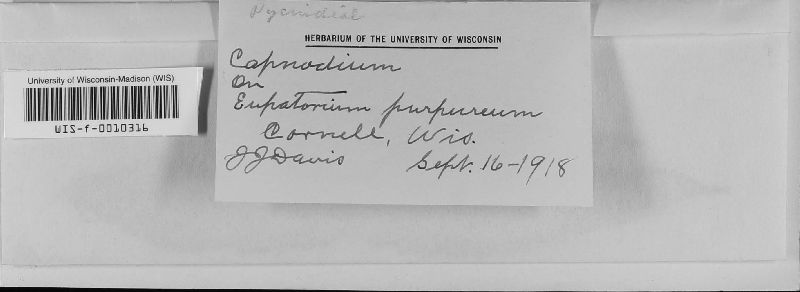 Pycnidial
HERBARIUM OF THE UNIVERSITY OF WISCONSIN
Capnodium
On
Eupatorium purpureum
Cornell, Wis.
JJDavis Sept. 16-1918
University of Wisconsin-Madison (WIS)
WIS-f-0010316